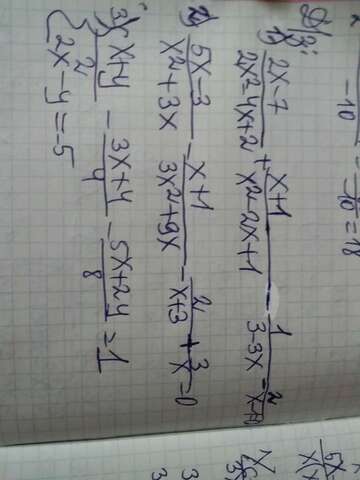 -10 -10 = 18
D/З:
1) 2x-7/2x²-4x+2 + x+1/x²-2x+1 - 1/3-3x =
2) 5x-3/x²+3x - x+1/3x²+9x - 2/x+3 + 3/x = 0
3) { x+y/2 - 3x+y/4 - 5x+2y/8 = 1
2x-y=-5